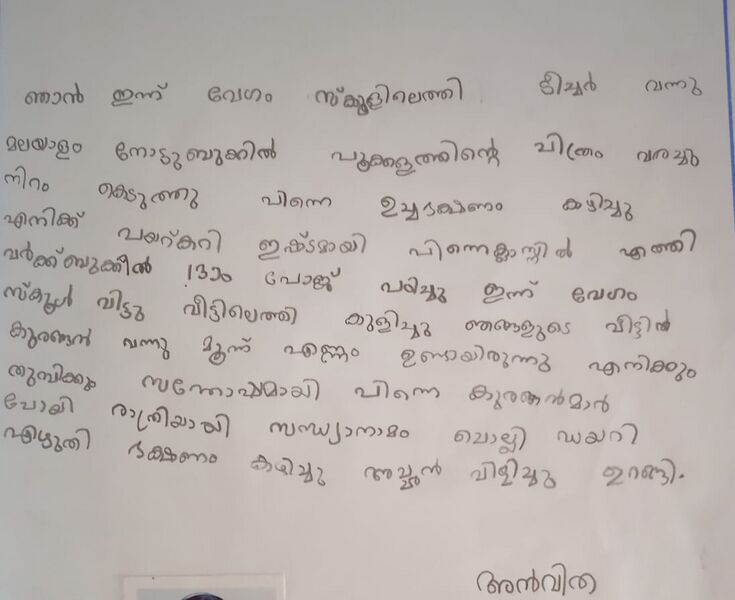 ഞാൻ ഇന്ന് വേഗം സ്ക്കൂളിലെത്തി ടീച്ചർ വന്നു
മലയാളം നോട്ടുബുക്കിൽ പൂക്കളത്തിന്റെ ചിത്രം വരച്ചു
നിറം കൊടുത്തു പിന്നെ ഉച്ചഭക്ഷണം കഴിച്ചു
എനിക്ക് പയറ്കറി ഇഷ്ടമായി പിന്നെ ക്ലാസ്സിൽ എത്തി
വർക്ക്ബുക്കിൽ 13ാം പേജ് പഠിച്ചു ഇന്ന് വേഗം
സ്കൂൾ വിട്ടു വീട്ടിലെത്തി കുളിച്ചു ഞങ്ങളുടെ വീട്ടിൽ
കുരങ്ങൻ വന്നു മൂന്ന് എണ്ണം ഉണ്ടായിരുന്നു എനിക്കും
തുമ്പിക്കും സന്തോഷമായി പിന്നെ കുരങ്ങൻമാർ
പോയി രാത്രിയായി സന്ധ്യാനാമം ചൊല്ലി ഡയറി
എഴുതി ഭക്ഷണം കഴിച്ചു അച്ഛൻ വിളിച്ചു ഉറങ്ങി.
അൻവിത